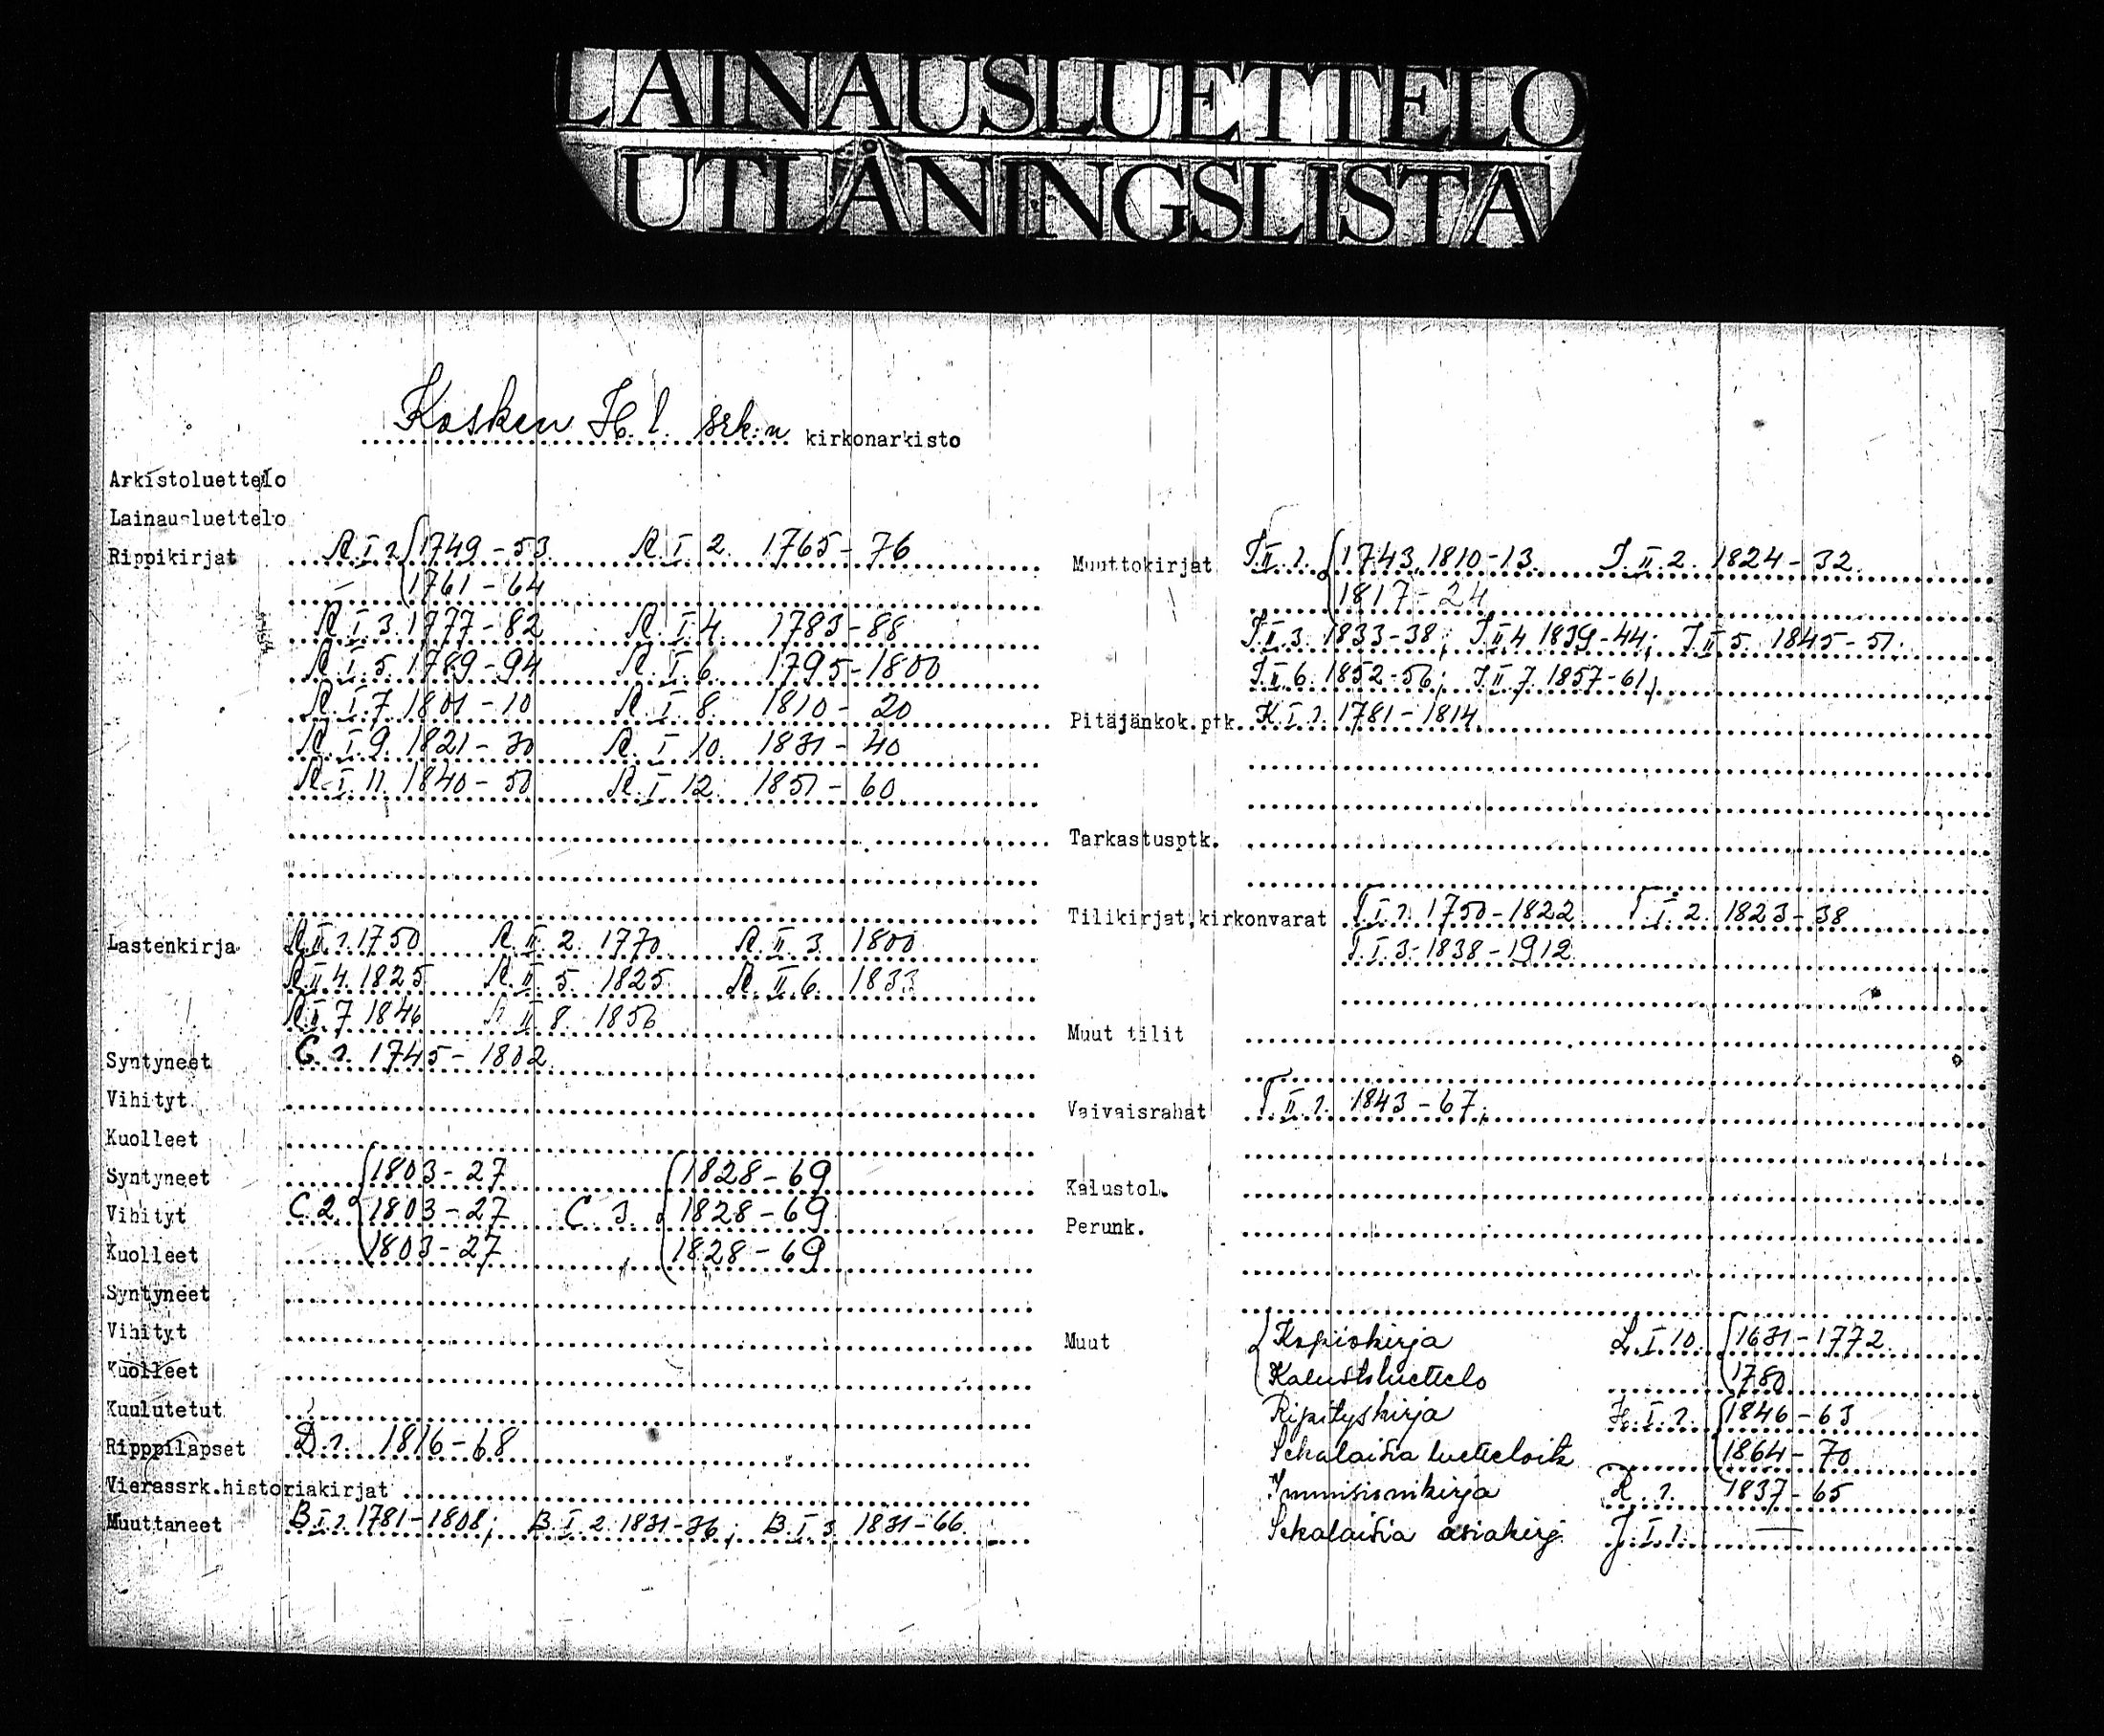 LAINAUSLUETTELO
UTLÅNINGSLISTA
Kosken H. l. srk:n kirkonarkisto
Arkistoluettelo
Lainausluettelo
Rippikirjat A. I. 1. 1749-53. A. I. 2. 1765-76
1761-64
A. I. 3. 1777-82 A. I. 4. 1783-88
A. I. 5. 1789-94 A. I. 6. 1795-1800
A. I. 7. 1801-10 A. I. 8. 1810-20
A. I. 9. 1821-30 A. I. 10. 1831-40
A. I. 11. 1840-50 A. I. 12. 1851-60.
Lastenkirja A. II. 1. 1750 A. II. 2. 1770 A. II. 3. 1800
A. II. 4. 1825 A. II. 5. 1825 A. II. 6. 1833
A. II. 7 1846 A. II. 8. 1856
Syntyneet C. 1. 1745-1802
Vihityt
Kuolleet
Syntyneet 1803-27 1828-69
Vihityt C. 2. 1803-27 C. 3. 1828-69
Kuolleet 1803-27 1828-69
Syntyneet
Vihityt
Kuolleet
Kuulutetut
Ripppilapset D. 1. 1816-68
Vierassrk.historiakirjat
Muuttaneet B. I. 1. 1781-1808; B. I. 2. 1831-36; B. I. 3. 1831-66.
Muuttokirjat I. II. 1. 1743, 1810-13. I. II. 2. 1824-32.
1817-24
I. II. 3. 1833-38; I. II. 4 1839-44; I. II. 5. 1845-51;
I. II. 6. 1852-56; I. II. 7. 1857-61;
Pitäjänkok.ptk. K. I. 1. 1781-1814
Tarkastusptk.
Tilikirjat,kirkonvarat T. I. 1. 1750-1822 T. I. 2. 1823-38
T. I. 3. 1838-1912
Muut tilit
Vaivaisrahat T. II. 1. 1843-67;
Kalustol.
Perunk.
Muut Kopiokirja L. I. 10. 1631-1772.
Kalustoluettelo 1780
Ripityskirja H. I. 1. 1846-63
Sekalaisia luetteloita 1864-70
Immisionikirja R. 1. 1837-65
Sekalaisia asiakirj. J. I. 1. —